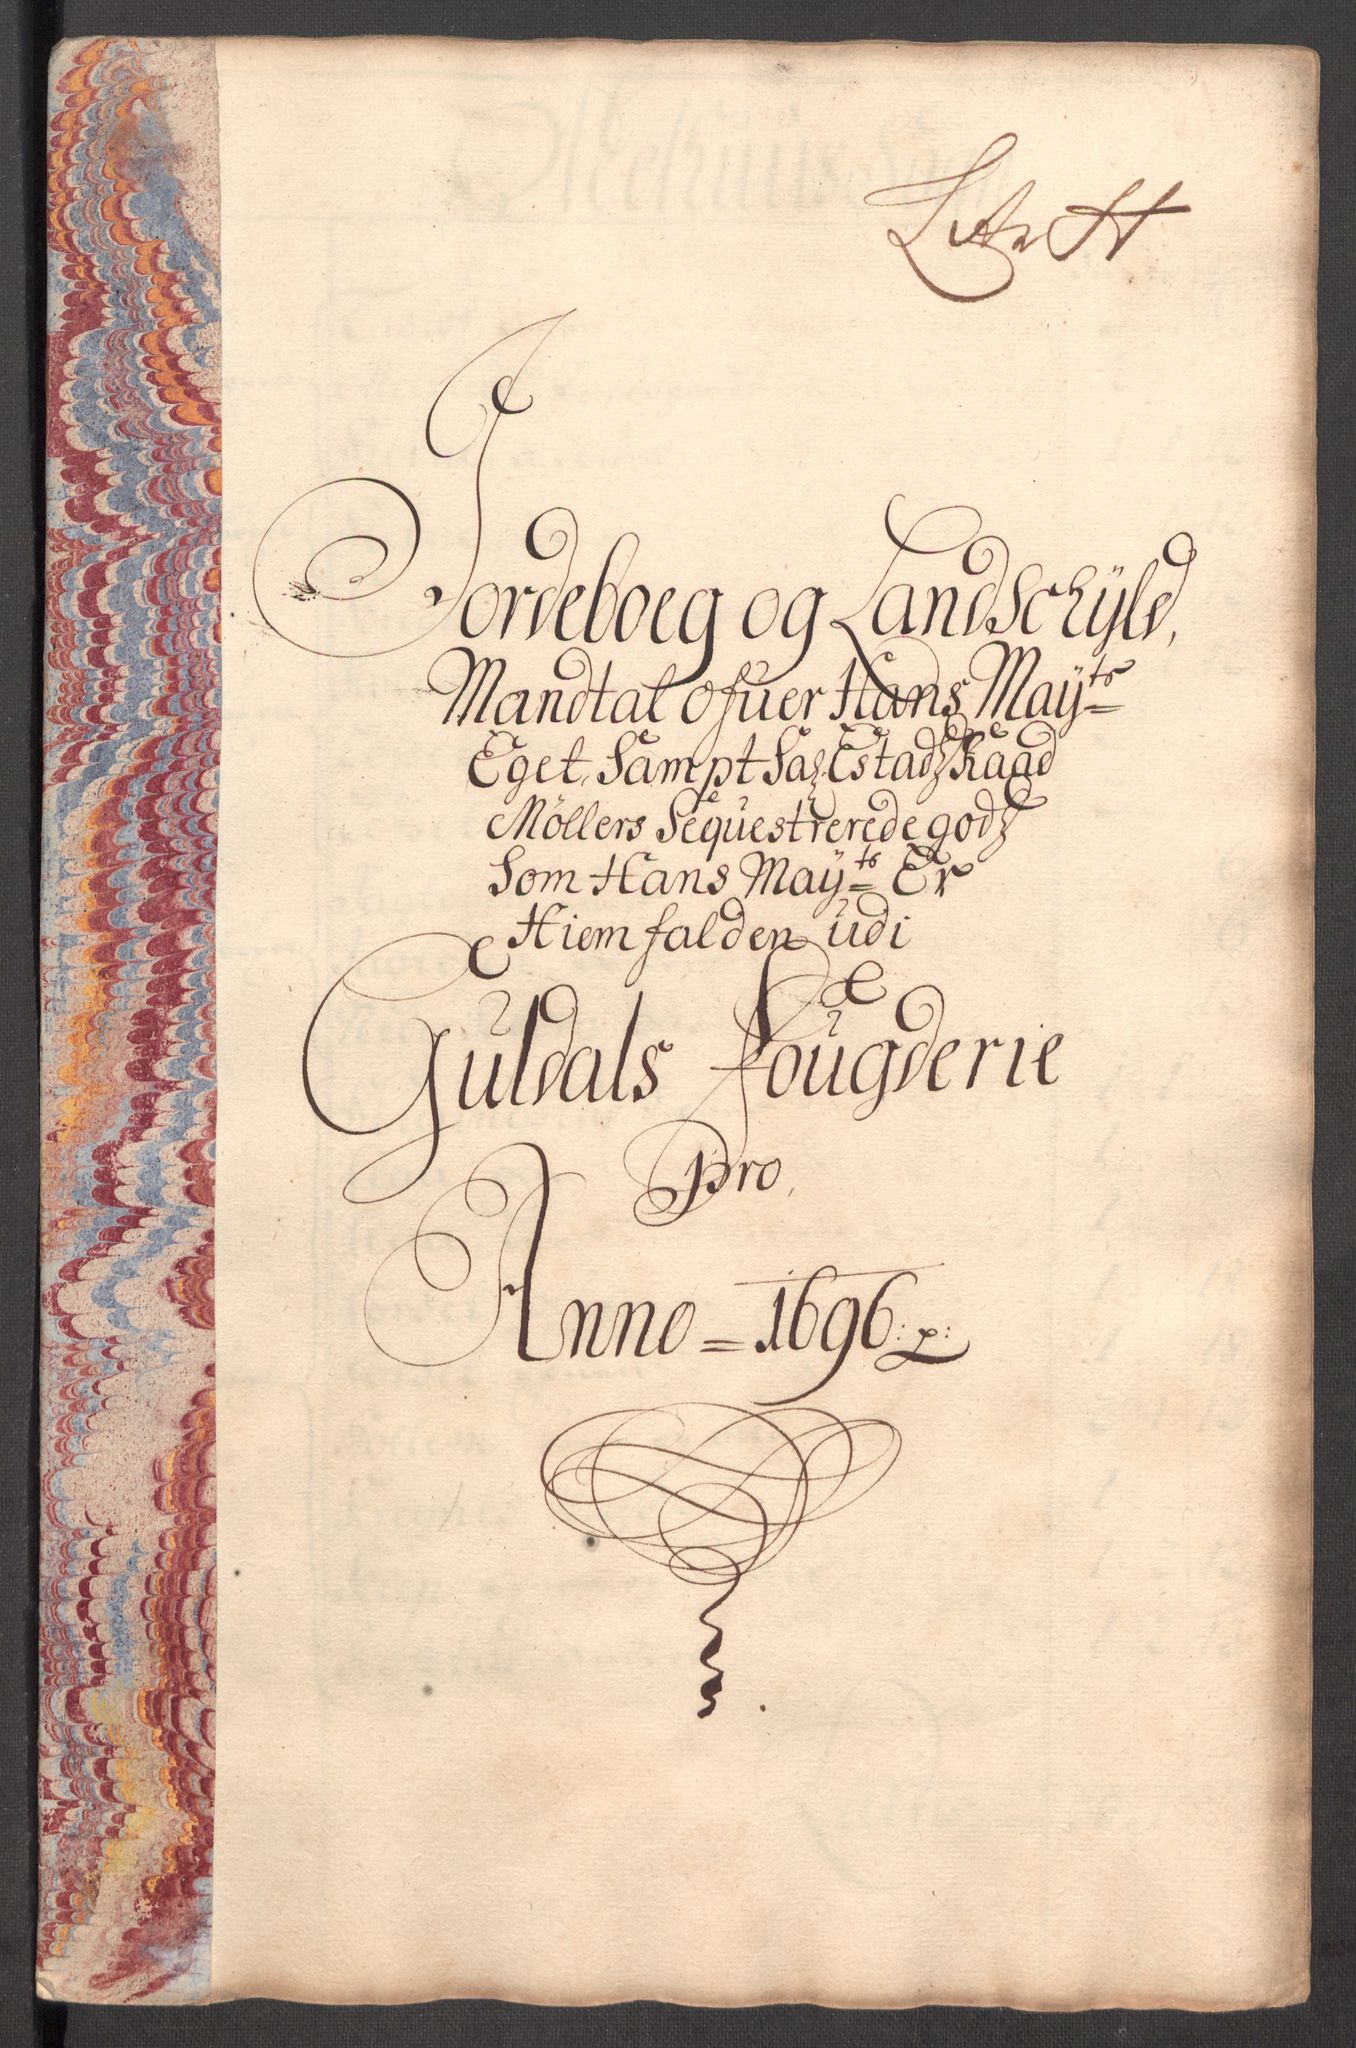 Litr H
Jordeboeg og Landschÿld,
Mandtal ofuer Hans Maÿts
Eget, Sampt Sal Estadz Raad
Möllers Sequestrerede godz
Som Hans Maÿts Er
Hiemfalden udi
Guldals Fougderie
Pro,
Anno = 1696